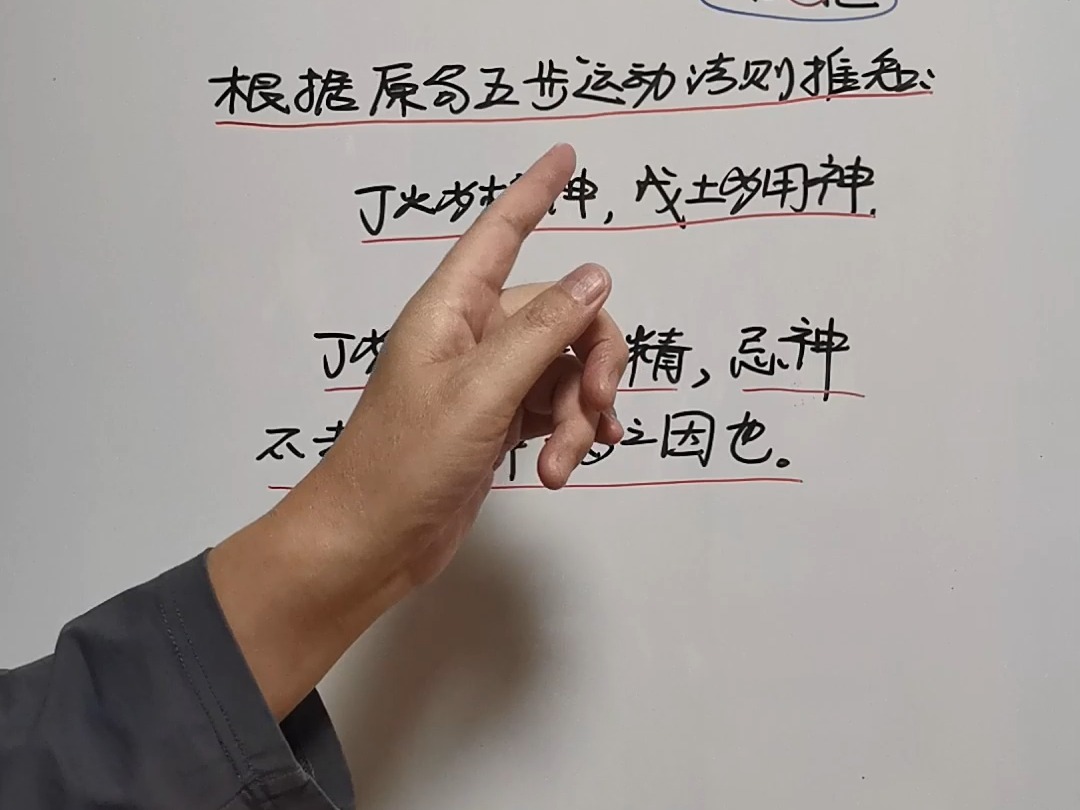 根据原局五步运动法则推知：
丁火为神，戊土为用神.
丁精，忌神
不之因也。